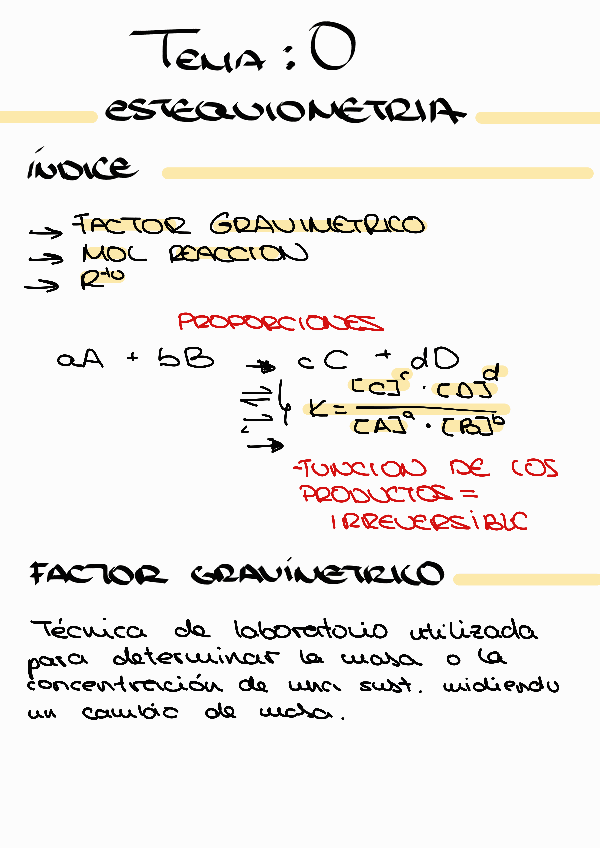 TEMA : 0
ESTEQUIOMETRIA
ÍNDICE
→ FACTOR GRAVIMETRICO
→ MOL REACCION
→ R^to
PROPORCIONES
aA + bB → cC + dD
⇌ K = [C]^c · [D]^d / [A]^a · [B]^b
→
FUNCION DE LOS
PRODUCTOS =
IRREVERSIBLE
FACTOR GRAVÍMETRICO
Técnica de laboratorio utilizada
para determinar la masa o la
concentración de una sust. midiendo
un cambio de masa.